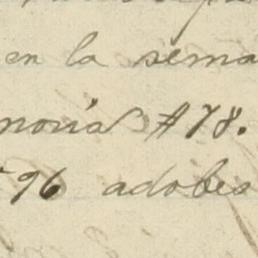 en la sema
moria #78.
96 adobes